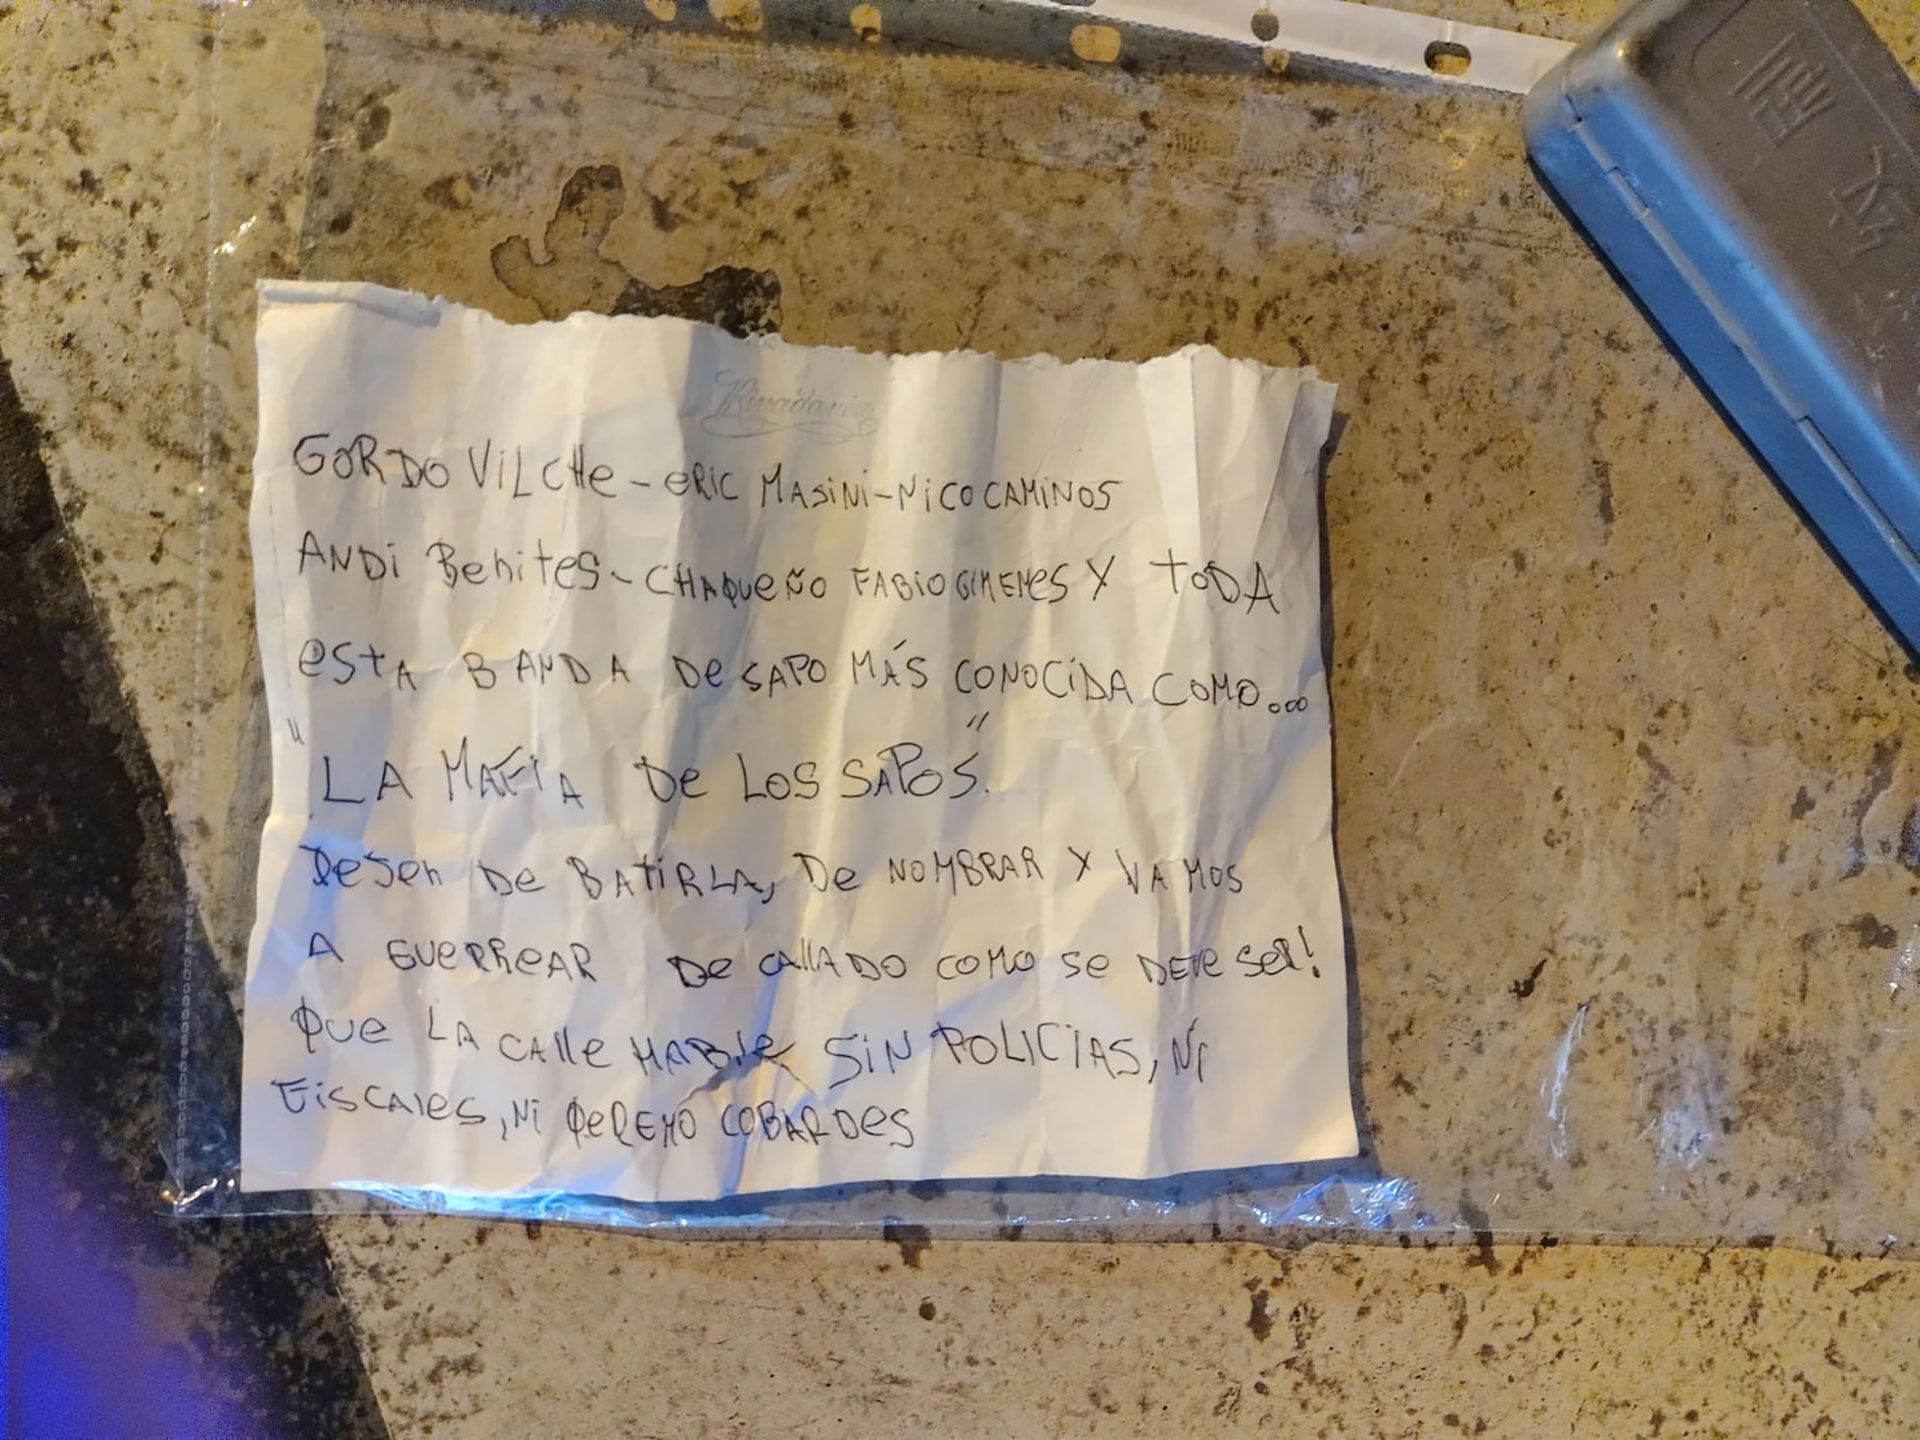 Rivadavia
GORDO VILCHe - eRIC MASiNi - NiCO CAMINOS
ANDi Benites - CHAQUeÑO FABIO GIMENeS Y toDA
eStA BANDA De SAPO MÁS CONOCíDA COMO...
"LA MAFIA De LOS SAPOS".
DeJen De BAtiRLA, De NOMBRAR Y VAMOS
A GUeRReAR De CAllADO COMO Se DEVE SeR!
QUe LA CAlle HABle SiN POLICIAS, Ni
FiSCAleS, Ni COBARDeS